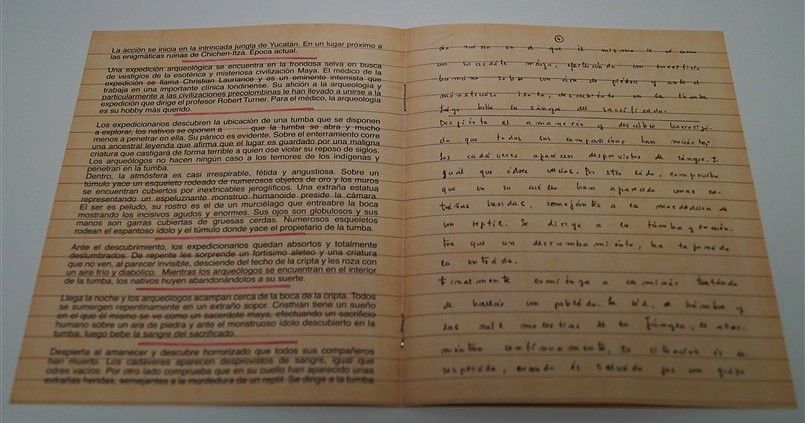 La acción se inicia en la intrincada jungla de Yucatán. En un lugar próximo a
las enigmáticas ruinas de Chichen-Itzá. Epoca actual.
Una expedición arqueológica se encuentra en la frondosa selva en busca
de vestigios de la esotérica y misteriosa civilización Maya. El médico de la
expedición se llama Christian Laurance y es un eminente internista que
trabaja en una importante clínica londinense. Su adición a la arqueología y
particularmente a las civilizaciones precolombinas le han llevado a unirse a la
expedición que dirige el profesor Robert Turner. Para el médico, la arqueología
es su hobby más querido.
Los expedicionarios descubren la ubicación de una tumba que se disponen
a explorar, los nativos se oponen a que la tumba se abra y mucho
menos a penetrar en ella. Su pánico es evidente. Sobre el enterramiento corre
una ancestral leyenda que afirma que el lugar es guardado por una maligna
criatura que castigará de forma terrible a quien ose violar su reposo de siglos.
Los arqueólogos no hacen ningún caso a los temores de los indígenas y
penetran en la tumba.
Dentro, la atmósfera es casi irrespirable, fétida y angustiosa. Sobre un
túmulo yace un esqueleto rodeado de numerosos objetos de oro y los muros
se encuentran cubiertos por inextricables jeroglíficos. Una extraña estatua
representando un espeluznante monstruo humanoide preside la cámara.
El ser es peludo, su rostro es el de un murciélago que entreabre la boca
mostrando los incisivos agudos y enormes. Sus ojos son globulosos y sus
manos son garras cubiertas de gruesas cerdas. Numerosos esqueletos
rodean el espantoso ídolo y el túmulo donde yace el propietario de la tumba.
Ante el descubrimiento, los expedicionarios quedan absortos y totalmente
deslumbrados. De repente les sorprende un fortísimo aleteo y una criatura
que no ven, al parecer invisible, desciende del techo de la cripta y les roza con
un aire frío y diabólico. Mientras los arqueólogos se encuentran en el interior
de la tumba, los nativos huyen abandonándolos a su suerte.
Llega la noche y los arqueólogos acampan cerca de la boca de la cripta. Todos
se sumergen repentinamente en un extraño sopor. Cristhian tiene un sueño
en el que él mismo se ve como un sacerdote maya, efectuando un sacrificio
humano sobre un ara de piedra y ante el monstruoso ídolo descubierto en la
tumba, luego bebe la sangre del sacrificado.
Despierta al amanecer y descubre horrorizado que todos sus compañeros
han muerto. Los cadáveres aparecen desprovistos de sangre, igual que
odres vacíos. Por otro lado comprueba que en su cuello han aparecido unas
extrañas heridas, semejantes a la mordedura de un reptil. Se dirige a la tumba
do sueño en el que él mismo se ve como
un sacerdote maya, efectuando un sacrificio
humano sobre un ara de piedra y ante el
monstruoso ídolo, descubierto en la tumba
luego bebe la sangre del sacrificado.
Despierta al amanecer y descubre horroriza-
do que todos sus compañeros han muerto,
los cadáveres aparecen desprovistos de sangre,
igual que odres vacíos. Por otro lado, comprueba
que en su cuello han aparecido unas ex-
trañas heridas, semejantes a la mordedura de
un reptil. Se dirige a la tumba y encuen-
tra que un derrumbamiento, ha tapado
la entrada.
Finalmente comienza a caminar tratando
de hallar un poblado. la sed, el hambre y
las mil molestias de la jungla, le ator-
mentan continuamente, su situación es de-
sesperada, cuando es salvado por un grupo